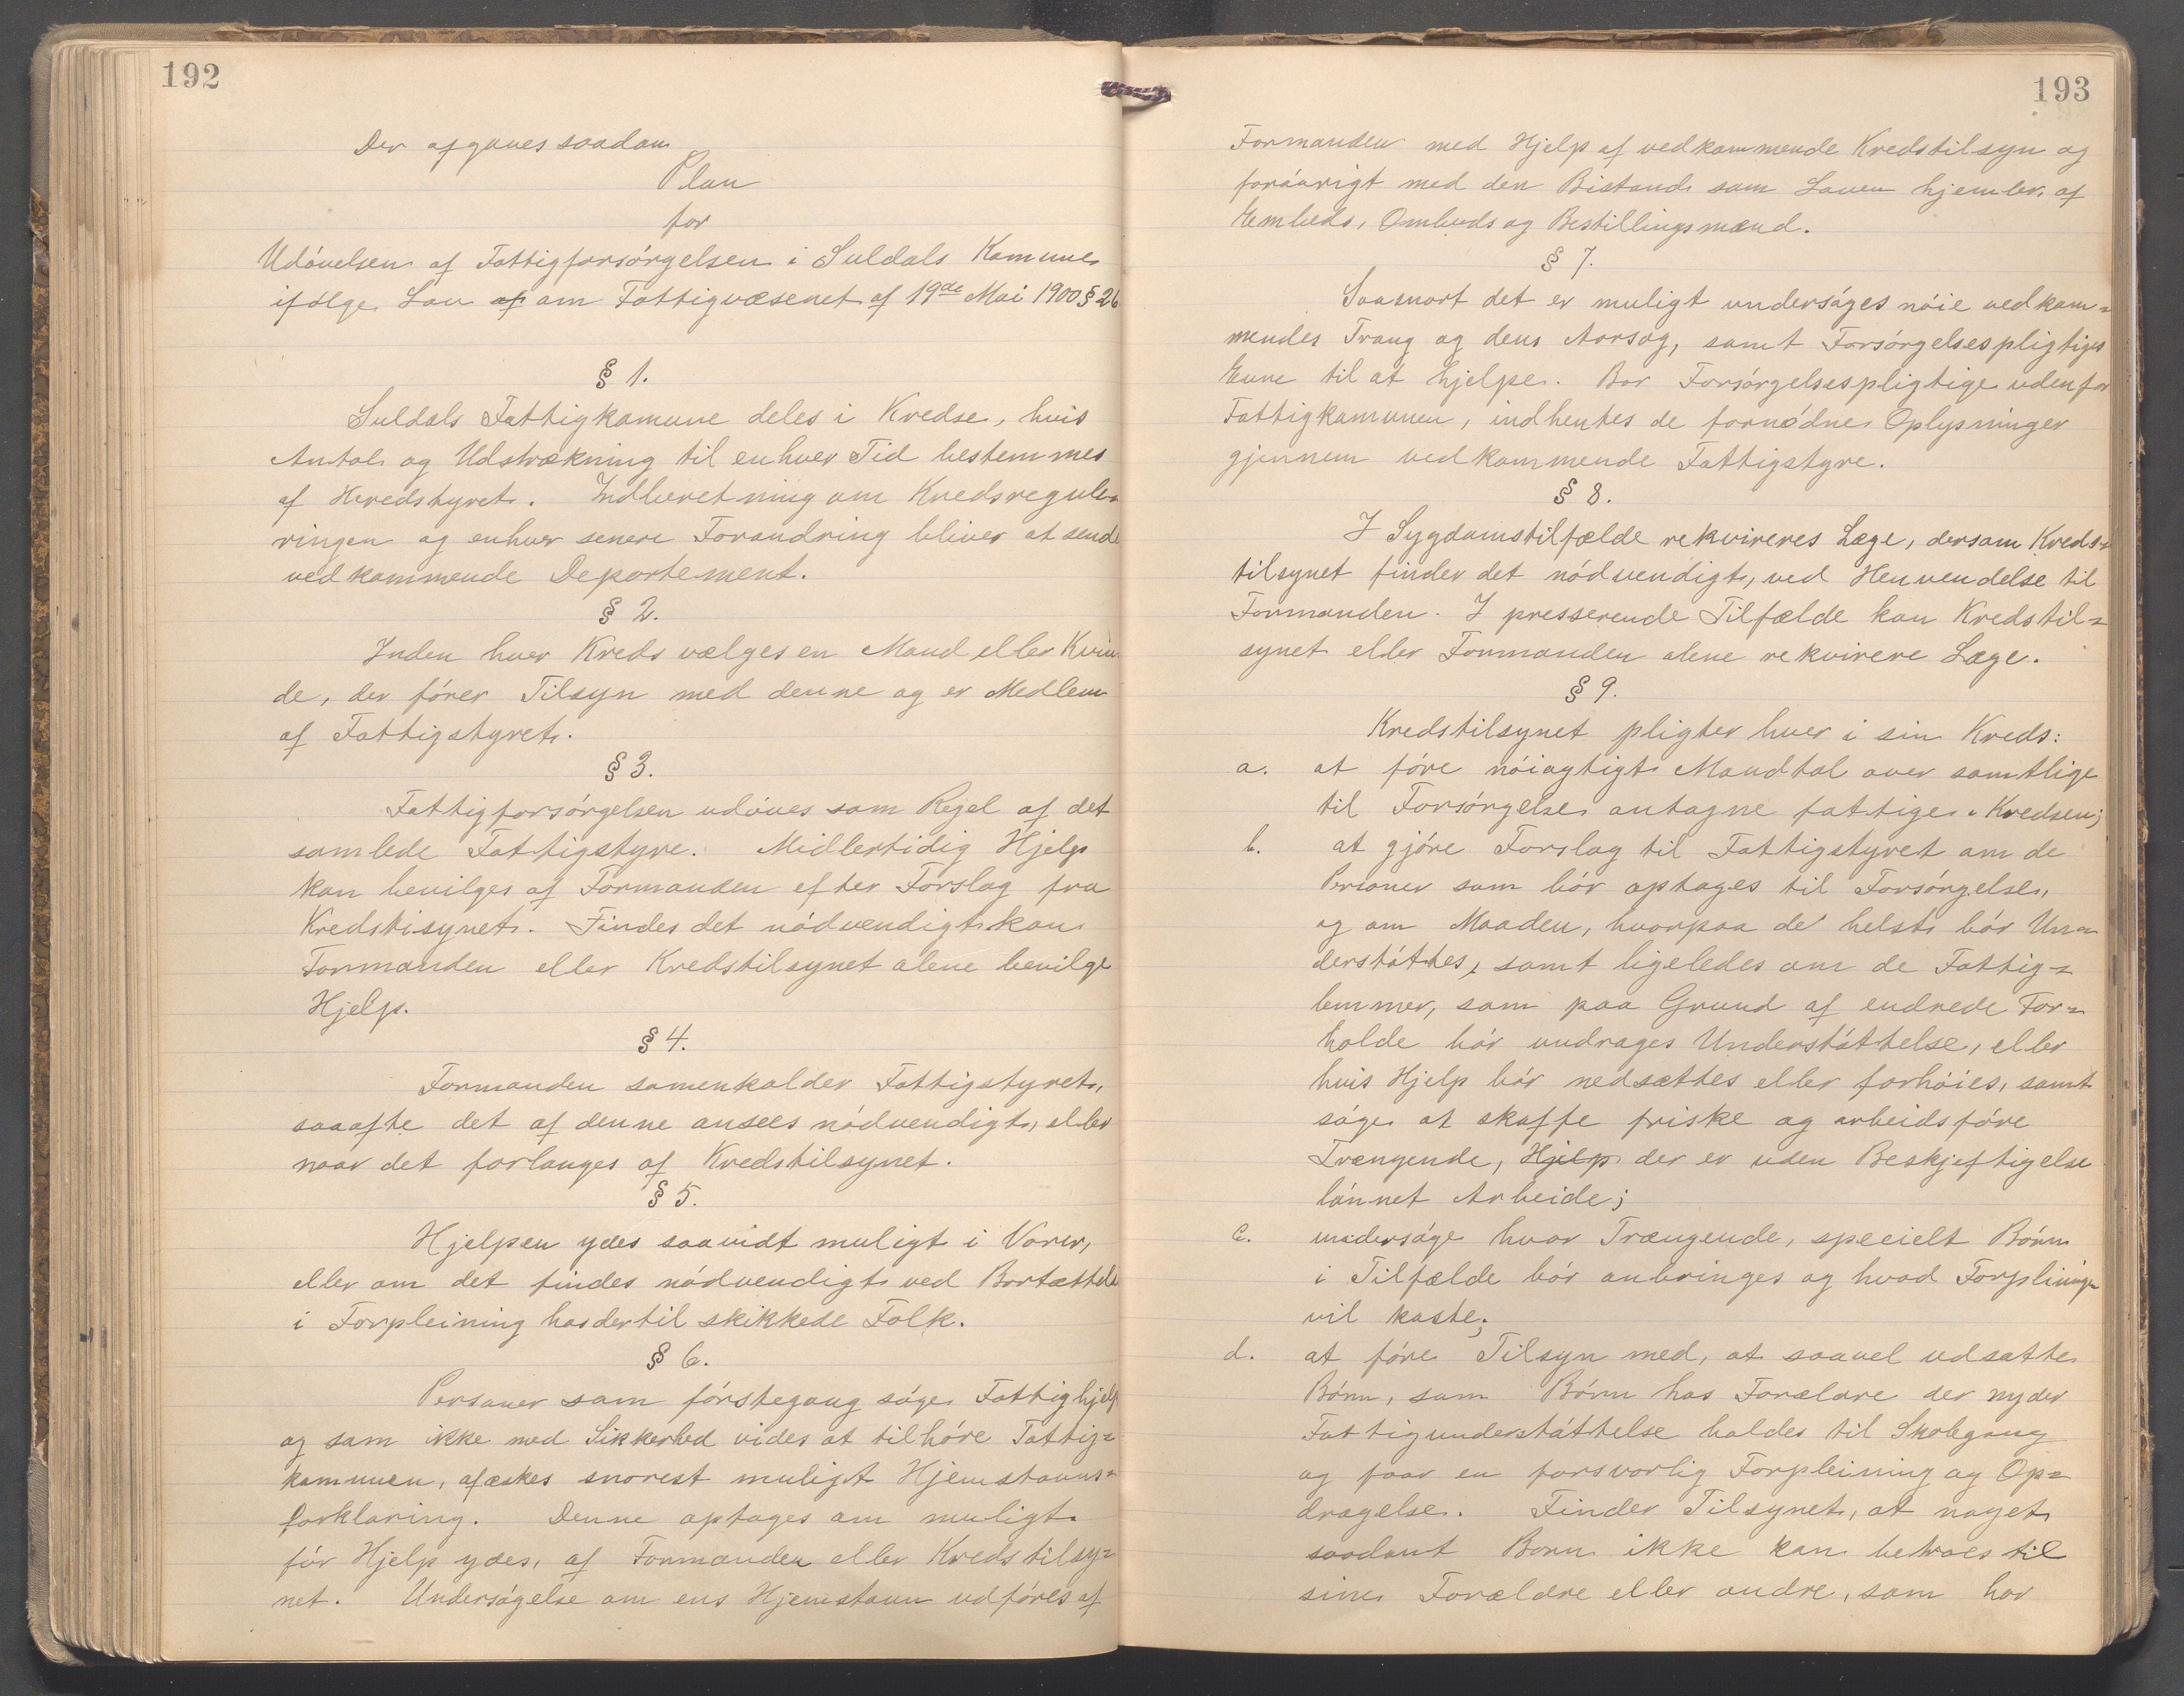 192
Der afgaves saadan
Plan
for
Udövelsen af Fattigforsörgelsen i Suldals Kommune
ifölge Lov af om Fattigvæsenet af 19de Mai 1900 § 26
§ 1.
Suldals Fattigkomune deles i Kredse, hvis
Antal og Udstrækning til enhver Tid bestemmes
af Heredstyret. Indberetning om Kredsregule-
ringen og enhver senere Forandring bliver at sende
vedkommende Departement.
§ 2.
Inden hver Kreds vælges en Mand eller Kvin-
de, der förer Tilsyn med denne og er Medlem
af Fattigstyret.
§ 3.
Fattigforsörgelsen udöves som Regel af det
samlede Fattigstyre. Midlertidig Hjelp
kan bevilges af Formanden efter Forslag fra
Kredstisynet. Findes det nödvendigt kan
Formanden eller Kredstilsynet alene bevilge
Hjelp.
§ 4.
Formanden samenkalder Fattigstyret,
saaofte det af denne ansees nödvendigt, eller
naar det forlanges af Kredstilsynet.
§ 5.
Hjelpen ydes saavidt muligt i Varer,
eller om det findes nödvendigt ved Bortsættelse
i Forpleining hos dertil skikkede Folk.
§ 6.
Personer som förstegang söge Fattighjelp
og som ikke med Sikkerhed vides at tilhöre Fattig-
kommunen, afæskes snarest muligst Hjemstavns-
forklaring. Denne optages om muligt
för Hjelp ydes, af Formanden eller Kredstilsy-
net. Undersögelse om ens Hjemstavn udföres af
193
Formanden med Hjelp af vedkommende Kredstilsyn og
foröврigt med den Bistand som Loven hjemler af
Embeds, Ombuds og Bestillingsmænd.
§ 7.
Saasnart det er muligt undersöges nöie vedkom-
mendes Trang og dens Aarsag, samt Forsörgelsespligtiges
Evne til at hjelpe. Bor Forsörgelsespligtige udenfor
Fattigkomunen, indhentes de fornödne Oplysninger
gjennem vedkommende Fattigstyre.
§ 8.
I Sygdomstilfælde rekvireres Læge, dersom Kreds-
tilsynet finder det nödvendigt, ved Henvendelse til
Formanden. I presserende Tilfælde kan Kredstil-
synet eller Formanden alene rekvirere Læge.
§ 9.
Kredstilsynet pligter hver i sin Kreds:
a. at före nöiagtigt Mandtal over samtlige
til Forsörgelse antagne fattige i Kredsen;
b. at gjöre Forslag til Fattigstyret om de
Personer som bör optages til Forsörgelse,
og om Maaden, hvorpaa de helst bör Un-
derstöttes, samt ligeledes om de Fattig-
lemmer, som paa Grund af endrede For-
holde bör undrages Understöttelse, eller
hvis Hjelp bör nedsættes eller forhöies, samt
söge at skaffe friske og arbeidsföre
Trængende, Hjelp der er uden Beskjeftigelse
lönnet Arbeide;
c. undersöge hvor Trængende, specielt Börn
i Tilfælde bör anbringes og hvad Forpliningen
vil koste;
d. at före Tilsyn med, at saavel udsatte
Börn, som Börn hos Forældre der nyder
Fattigunderstöttelse holdes til Skolegang
og faar en forsvarlig Forpleining og Op-
dragelse. Finder Tilsynet, at noget
saadant Barn ikke kan betroes til
sine Forældre eller andre, som har